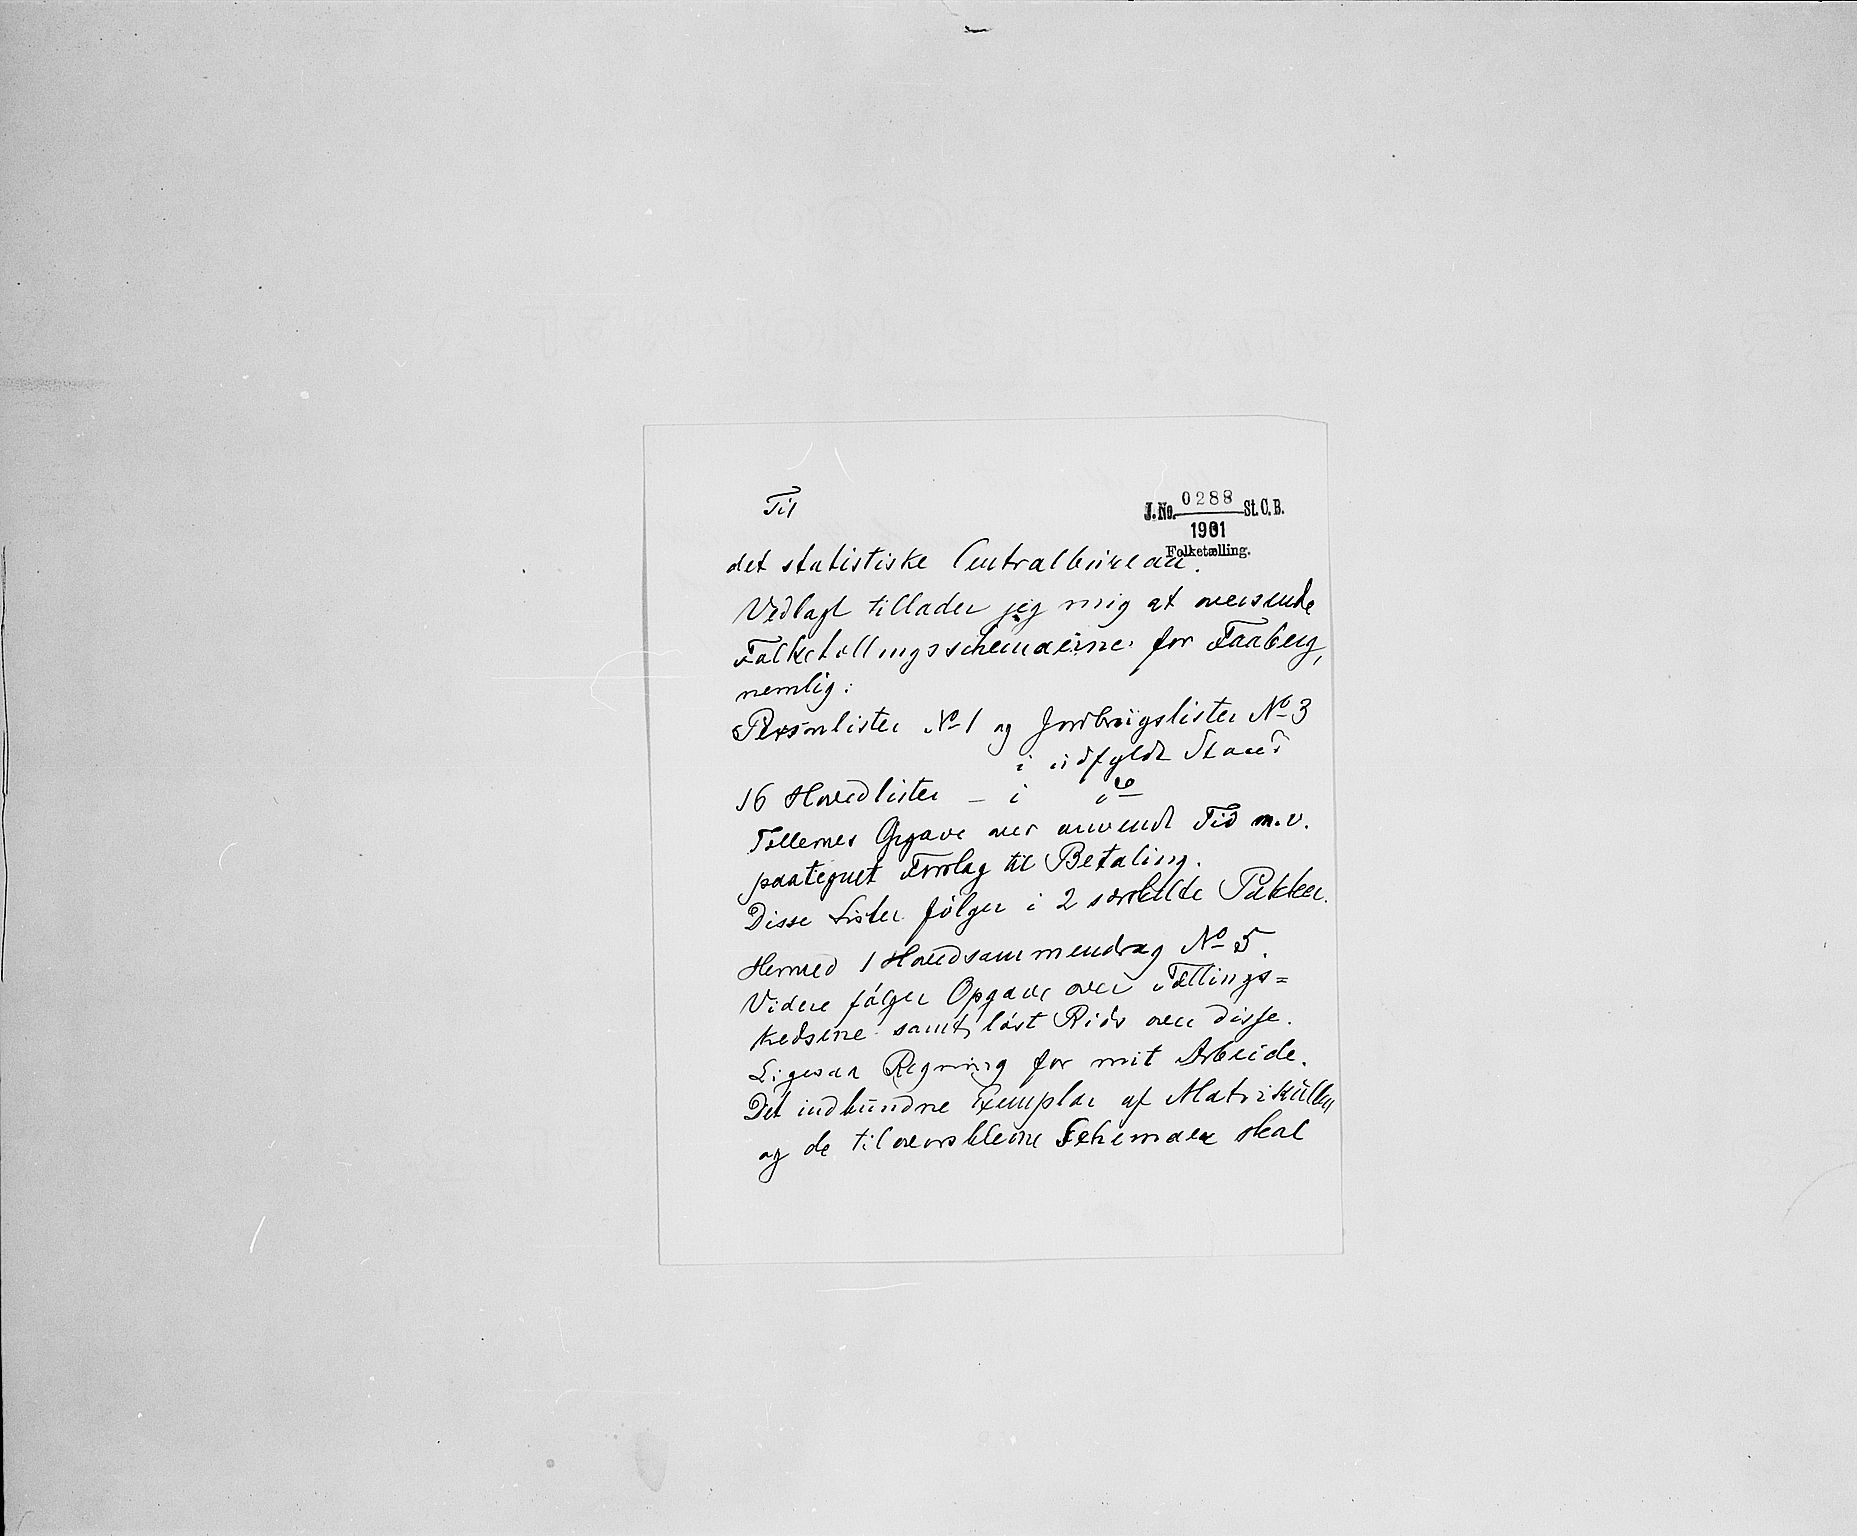 Til
J. No. 0288 St. C. B.
1901
Folketælling.
det statistiske Centralbureau.
Vedlagt tillader jeg mig at oversende
Folketællingsschemaerne for Faaberg,
nemlig:
Personlister No 1 og Jordbrugslister No 3
i udfyldt Stand
16 Hovedlister – i do
Tællernes Opgave over anvendt Tid m.v.
paategnet Forslag til Betaling.
Disse Lister følger i 2 særskilte Pakker.
Hermed 1 Hovedsammendrag No 5.
Videre følger Opgave over Tællings=
kredsene samt løst Rids over disse.
Ligesaa Regning for mit Arbeide.
Det indbundne Exemplar af Matrikullen
og de tiloversblevne Schemaer skal